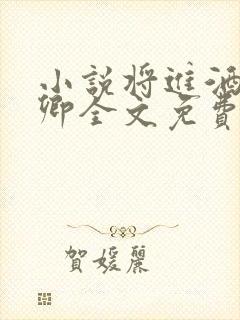 小說將進酒
卿全文免費
賀媛麗